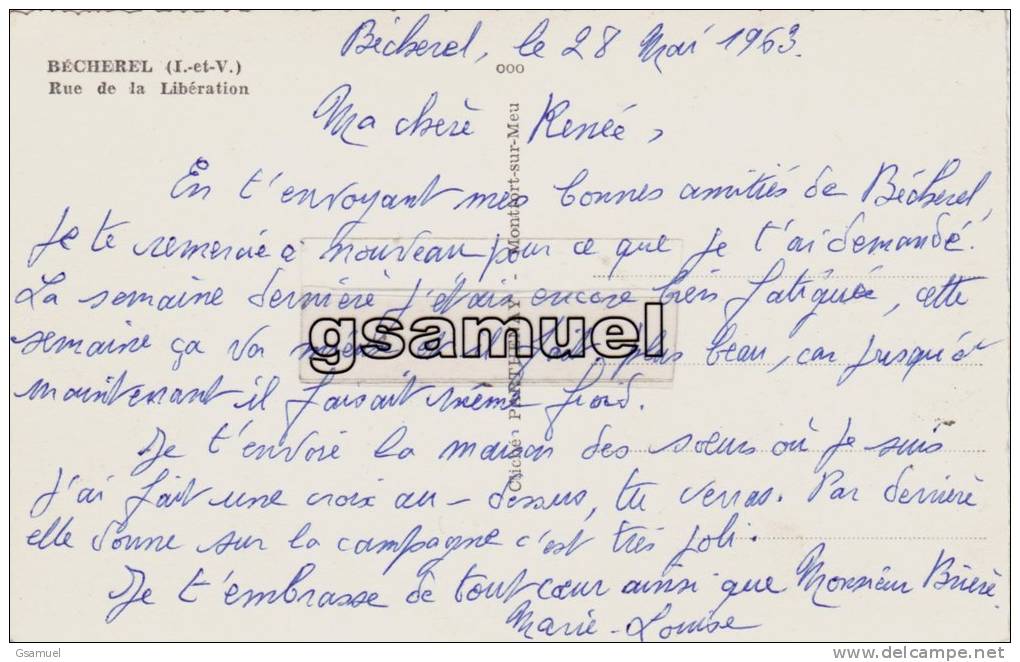 Bécherel, le 28 Mai 1963.
BÉCHEREL (I.-et-V.)
Rue de la Libération
ooo
Ma chère Renée,
En t'envoyant mes bonnes amitiés de Bécherel,
Je te remercie à nouveau pour ce que je t'ai demandé.
La semaine dernière j'étais encore bien fatiguée, cette
semaine ça va mieux et il fait plus beau, car jusqu'à
maintenant il faisait même froid.
Je t'envoie la maison des soeurs où je suis
J'ai fait une croix au-dessus, tu verras. Par derrière
elle donne sur la campagne c'est très joli.
Je t'embrasse de tout coeur ainsi que Monsieur Brière.
Marie-Louise
Cliché PARTHENAY - Montfort-sur-Meu
gsamuel
Gsamuel
delcampe.net